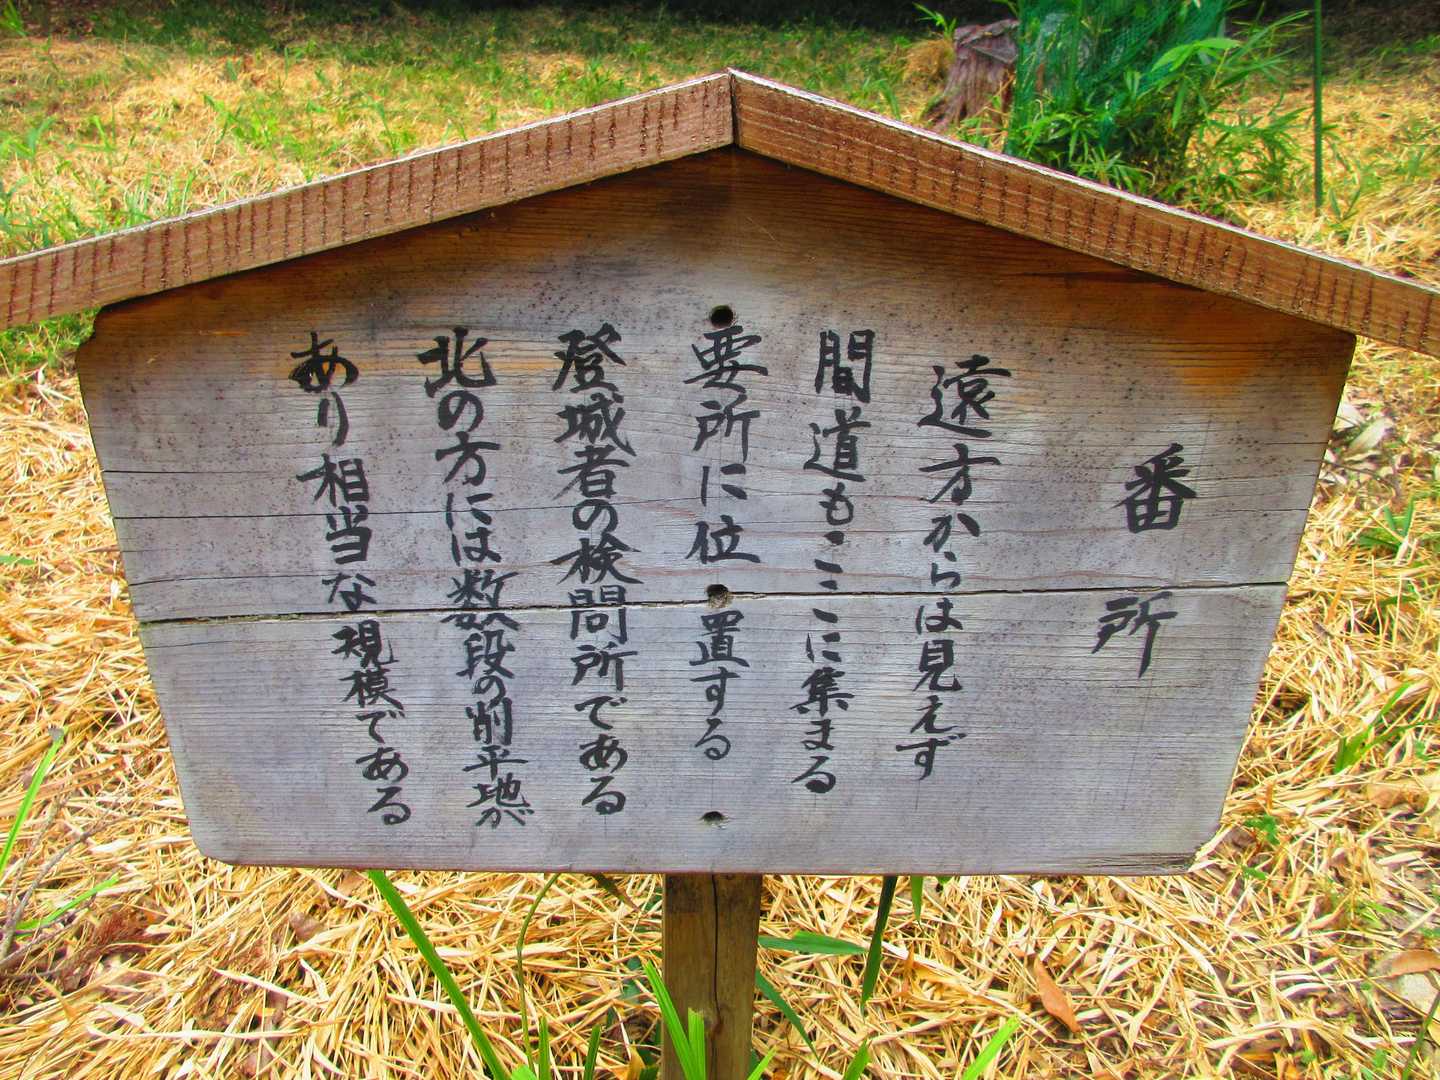 番所
遠方からは見えず
間道もここに集まる
要所に位置する
登城者の検問所である
北の方には数段の削平地が
あり相当な規模である